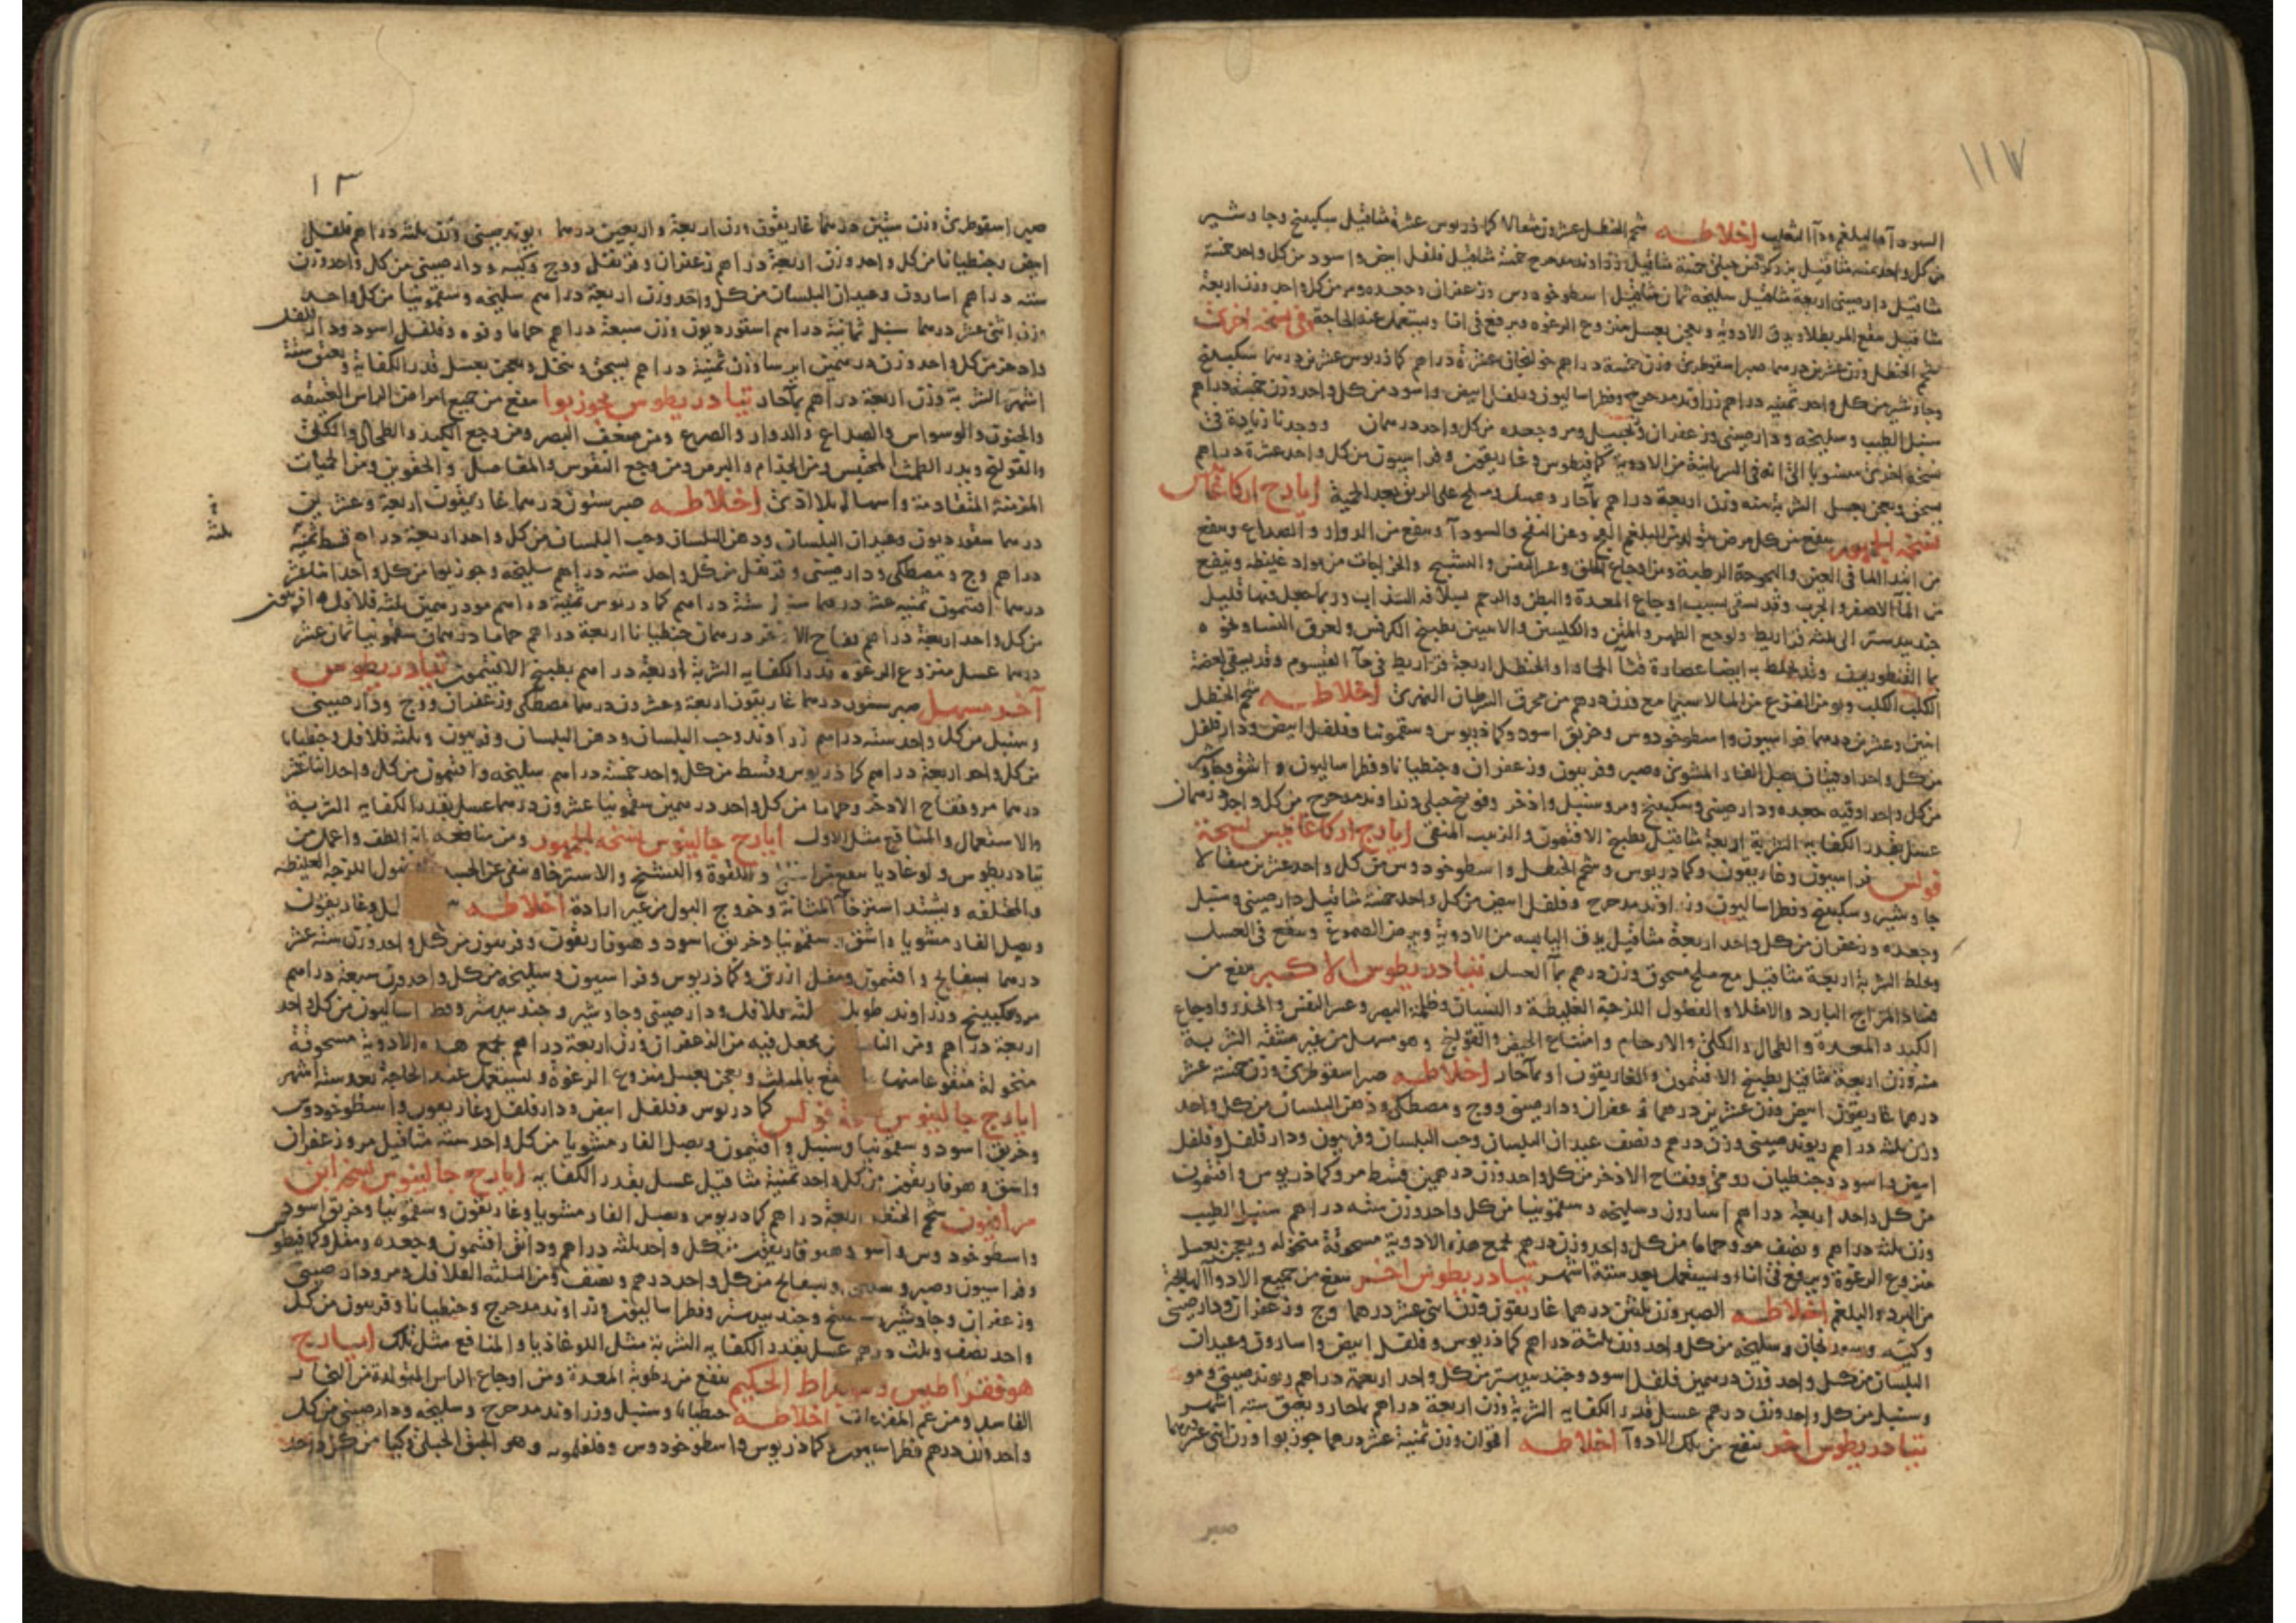 ١١٧
السودآ والبلغم ودآ الثعلب اخلاطـه شحم الحنظل عشرون مثقالا كماذريوس عشرة مثاقيل سكبينج وجاوشير
من كل واحد ثمنيه مثاقيل خمسة مثاقيل زراوند مدحرج خمسة مثاقيل فلفل ابيض واسود من كل واحد خمسة
مثاقيل دارصيني اربعة مثاقيل سليخه ثمان مثاقيل اسطوخودوس وزعفران وجعده ومر من كل واحد وزن اربعة
مثاقيل ينقع المر بطلا ويدق الادويه ويعجن بعسل منزوع الرغوه ويرفع في انا ويستعمل عند الحاجة وفي نسخه اخرى
شحم الحنظل وزن عشرين درهما صبر اسقوطري وزن خمسة دراهم خولنجان عشرة دراهم كماذريوس عشرين درهما سكبينج
وجاوشير من كل واحد ثمنيه دراهم زراوند مدحرج وفطراساليون وفلفل ابيض واسود من كل واحد وزن خمسة دراهم
سنبل الطيب وسليخه ودارصيني وزعفران وزنجبيل ومر وجعده من كل واحد درهمان ووجدنا زيادة في
نسخه اخرى منسوبا الى انه في السريانية من الادوية كمافيطوس وغاريقون وفراسيون من كل واحد عشرة دراهم
يسحق ويعجن بعسل الشربة منه وزن اربعة دراهم بمآ حار وعسل وملح على الريق بعد الحمية ايارج اركاغانيس
نسخه الجمهور ينفع من كل مرض متولد من البلغم وعن النفخ والسودآ وينفع من الدوار والصداع وينفع
من ابتدا الما في العين والبحوحة الرطبة ومن اوجاع الحلق وعسر النفس والتشنج والخراجات من مواد غليظه وينفع
من المآ الاصفر والجرب وقد يسقى بسبب اوجاع المعدة والبطن والرحم بسلافه الشراب وربما جعل فيها قليل
جندبيدستر الى ثلثه قراريط ولوجع الظهر والمتن والكليتين والانثيين بطبيخ الكرفس ولعرق النسا ونحوه
بما القنطوريون وقد يخلط به ايضا عصارة قثآ الحمار او الحنظل اربعة قراريط في مآ القيسوم وقد يسقى لعضة
الكلب الكلب ومن الفزع من الما لاسيما مع وزن درهم من محرق السرطان النهري اخلاطـه شحم الحنظل
اثنين وعشرين درهما فراسيون واسطوخودوس وخربق اسود وكماذريوس وسقمونيا وفلفل ابيض ودارفلفل
من كل واحد اوقيتان بصل الفار المشوي وصبر وفربيون وزعفران وجنطيانا وفطراساليون واشق وجاوشير
من كل واحد اوقيه جعده ودارصيني وسكبينج ومر وسنبل واذخر وفوتنج جبلي وزراوند مدحرج من كل واحد درهمان
عسل بقدر الكفايه الشربة اربعة مثاقيل بطبيخ الافتيمون والزبيب المنقى ايارج اركاغانيس نسخة
فولس فراسيون وغاريقون وكماذريوس وشحم الحنظل واسطوخودوس من كل واحد عشرين مثقالا
جاوشير وسكبينج وفطراساليون وزراوند مدحرج وفلفل ابيض من كل واحد خمسة مثاقيل دارصيني وسنبل
وجعده وزعفران من كل واحد اربعة مثاقيل يدق اليابسه من الادوية ويرض الصموغ وينقع في العسل
ويخلط الشربة اربعة مثاقيل مع ملح مسحوق وزن درهم بمآ العسل تيادريطوس الاكبر ينفع من
فساد المزاج البارد والامتلا والفضول اللزجة الغليظة والنسيان وظلمة البصر وعسر النفس والخدر واوجاع
الكبد والمعدة والطحال والكلى والارحام وامتناع الحيض والقولنج وهو مسهل من غير مشقة الشربة
منه وزن اربعة مثاقيل بطبيخ الافتيمون والغاريقون او بمآ حار اخلاطـه صبر اسقوطري وزن خمسة عشر
درهما غاريقون ابيض وزن عشرين درهما زعفران ودارصيني ووج ومصطكى ودهن البلسان من كل واحد
وزن ثلثه دراهم ريوند صيني وزن درهم ونصف عيدان البلسان وحب البلسان وفربيون ودارفلفل وفلفل
ابيض واسود وجنطيان رومي وفقاح الاذخر من كل واحد وزن درهمين قسط مر وكماذريوس وافتيمون
من كل واحد اربعة دراهم اسارون وسليخه وسقمونيا من كل واحد وزن سته دراهم سنبل الطيب
وزن ثلثة دراهم ونصف مو وحماما من كل واحد وزن درهم تجمع هذه الادوية مسحوقة منخوله ويعجن بعسل
منزوع الرغوة ويرفع في اناء ويستعمل بعد ستة اشهر تيادريطوس اخـر ينفع من جميع الادوآ الهايجة
من البرد والبلغم اخلاطـه الصبر وزن ثلثين درهما غاريقون وزن اثنى عشر درهما وج وزعفران ودارصيني
وكيه وسورنجان وسليخه من كل واحد وزن ثلثة دراهم كماذريوس وفلفل ابيض واسارون وعيدان
البلسان من كل واحد وزن درهمين فلفل اسود وجندبيدستر من كل واحد اربعة دراهم ريوند صيني ومو
وسنبل من كل واحد وزن درهم عسل قدر الكفايه الشربة وزن اربعة دراهم بمآ حار ويعتق ستة اشهر
تيادريطوس اخر ينفع من تلك الادوآ اخلاطـه افتيمون وزن ثمنية عشر درهما جوزبوا وزن اثنى عشر درهما
صبر
١٣
صبر اسقوطري وزن ستين درهما غاريقون وزن اربعة واربعين درهما ريوند صيني وزن ثلثه دراهم فلفل
ابيض وجنطيانا من كل واحد وزن اربعة دراهم زعفران وقرنفل ووج وكيه ودارصيني من كل واحد وزن
سته دراهم اسارون وعيدان البلسان من كل واحد وزن اربعة دراهم سليخه وسقمونيا من كل واحد
وزن اثنى عشر درهما سنبل ثمانية دراهم اسقورديون وزن سبعة دراهم حماما وفوه وفلفل اسود ودار فلفل
واذخر من كل واحد وزن درهمين ايرسا وزن ثمنية دراهم يسحق وينخل ويعجن بعسل قدر الكفاية ويعتق ستة
اشهر الشربة وزن اربعة دراهم بمآ حار تيادريطوس بجوزبوا ينفع من جميع امراض الراس العتيقه
والجنون والوسواس والصداع والدوار والصرع ومن ضعف البصر ومن وجع الكبد والطحال والكلى
والقولنج ويدر الطمث المحتبس ومن الجذام والبرص ومن وجع النقرس والمفاصل والحقوين ومن الحميات
المزمنة المتقادمة واسهال بلا اذى اخلاطـه صبر ستون درهما غاريقون اربعة وعشرين
درهما سقورديون وعيدان البلسان ودهن البلسان وحب البلسان من كل واحد اربعة دراهم قسط ثمنية
دراهم وج ومصطكى ودارصيني وقرنفل من كل واحد سته دراهم سليخه وجوزبوا من كل واحد اثنا عشر
درهما افتيمون ثمنيه عشر درهما ستة دراهم كماذريوس ثمنية دراهم مو درهمين ثلثه فلافل وافربيون
من كل واحد اربعة دراهم فقاح الاذخر درهمان جنطيانا اربعة دراهم حماما درهمان سقمونيا ثمان عشر
درهما عسل منزوع الرغوه قدر الكفايه الشربة اربعة دراهم بطبيخ الافتيمون تيادريطوس
آخر مسهـل صبر ستون درهما غاريقون اربعة وعشرون درهما مصطكى وزعفران ووج ودارصيني
وسنبل من كل واحد سته دراهم زراوند وحب البلسان ودهن البلسان وفربيون وثلثه فلافل وجنطيانا
من كل واحد اربعة دراهم كماذريوس وقسط من كل واحد خمسة دراهم سليخه وافتيمون من كل واحد اثنا عشر
درهما مر وفقاح الاذخر وحماما من كل واحد درهمين سقمونيا عشرون درهما عسل بقدر الكفايه الشربة
والاستعمال والمنافع مثل الاول ايارج جالينوس نسخه الجمهور ومن منافعه انه الطف واعمل من
تيادريطوس ولوغاديا ينفع من واللقوة والتشنج والاسترخا وينقي عن الفضول اللزجة الغليظه
والمختلفه ويشتد استرخآ المثانة وخروج البول من غير ارادة اخلاطـه وغاريقون
وبصل الفار مشويا واشق وسقمونيا وخربق اسود وهوفاريقون وفربيون من كل واحد وزن ستة عشر
درهما بسفايج وافتيمون ومقل ازرق وكماذريوس وفراسيون وسليخه من كل واحد وزن سبعة دراهم
مر وسكبينج وزراوند طويل وثلثه فلافل ودارصيني وجاوشير وجندبيدستر وفطراساليون من كل واحد
اربعة دراهم ومن الناس من يجعل فيه من الزعفران وزن اربعة دراهم تجمع هذه الادوية مسحوقة
منخولة منقوعا منها ما ينقع بالمثلث ويعجن بعسل منزوع الرغوة ويستعمل عند الحاجة بعد ستة اشهر
ايارج جالينوس نسخة فولس كماذريوس وفلفل ابيض ودارفلفل وغاريقون واسطوخودوس
وخربق اسود وسقمونيا وسنبل وافتيمون وبصل الفار مشويا من كل واحد سته مثاقيل مر وزعفران
واشق وهوفاريقون من كل واحد ثمنية مثاقيل عسل بقدر الكفايه ايارج جالينوس نسخه ابن
سرافيون شحم الحنظل اربعة دراهم كماذريوس وبصل الفار مشويا وغاريقون وسقمونيا وخربق اسود
واسطوخودوس واشق وهوفاريقون من كل واحد ثلثه دراهم ودانق افتيمون وجعده ومقل وكمافيطوس
وفراسيون وصبر وبسفايج من كل واحد درهم ونصف ومن الثلثه الفلافل ومر ودارصيني
وزعفران وجاوشير وسكبينج وجندبيدستر وفطراساليون وزراوند مدحرج وجنطيانا وفربيون من كل
واحد نصف وثلث درهم عسل بقدر الكفايه الشربة مثل اللوغاذيا والمنافع مثل تلك ايـارج
هوفقراطيس الحكيم ينفع من رطوبة المعدة ومن اوجاع الراس المتولدة من البخار
الفاسد اخلاطـه جنطيانا وسنبل وزراوند مدحرج وسليخه ودارصيني من كل
واحد وزن درهم فطراساليون وكماذريوس واسطوخودوس وفلفلمويه وهو الحبق الجبلي وكيا من كل واحد
ثلثة